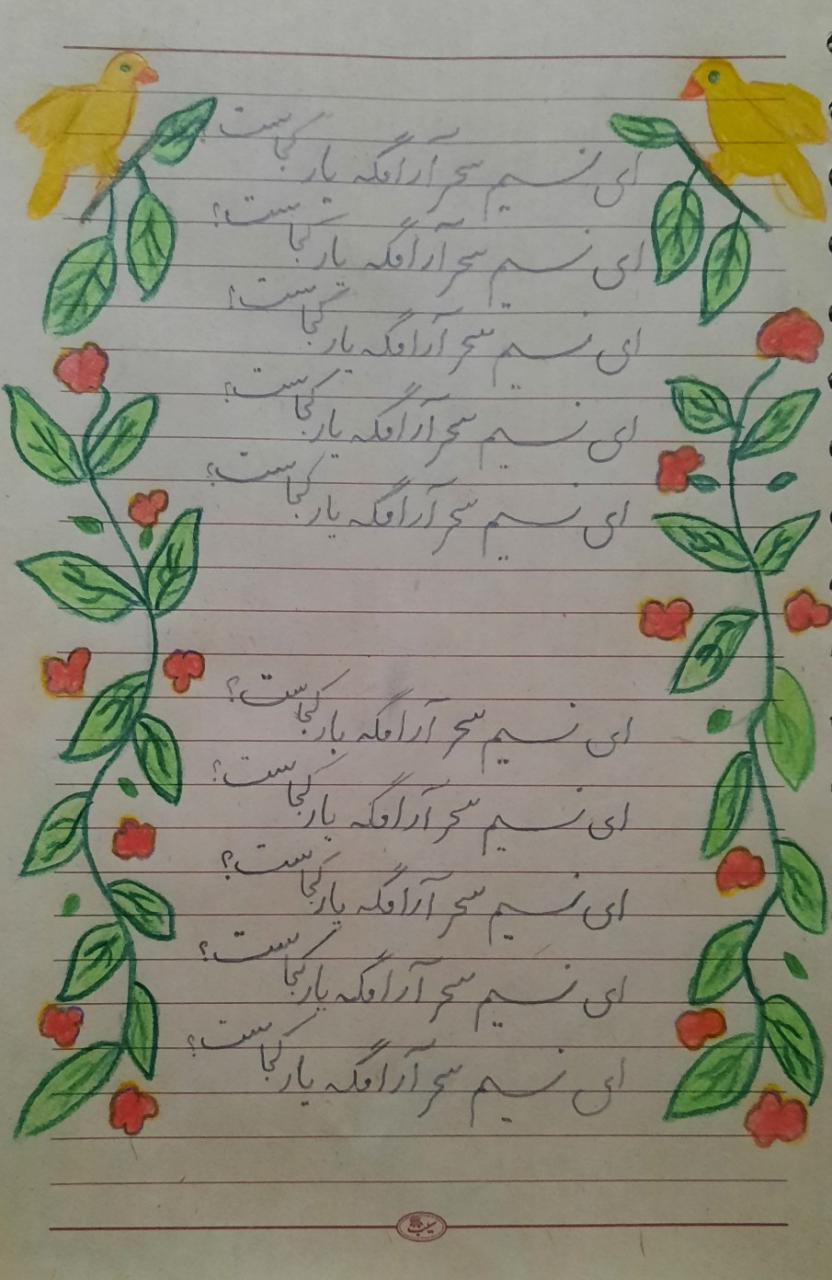 ای نسیم سحر آرامگه یار کجاست؟
ای نسیم سحر آرامگه یار کجاست؟
ای نسیم سحر آرامگه یار کجاست؟
ای نسیم سحر آرامگه یار کجاست؟
ای نسیم سحر آرامگه یار کجاست؟
ای نسیم سحر آرامگه یار کجاست؟
ای نسیم سحر آرامگه یار کجاست؟
ای نسیم سحر آرامگه یار کجاست؟
ای نسیم سحر آرامگه یار کجاست؟
ای نسیم سحر آرامگه یار کجاست؟